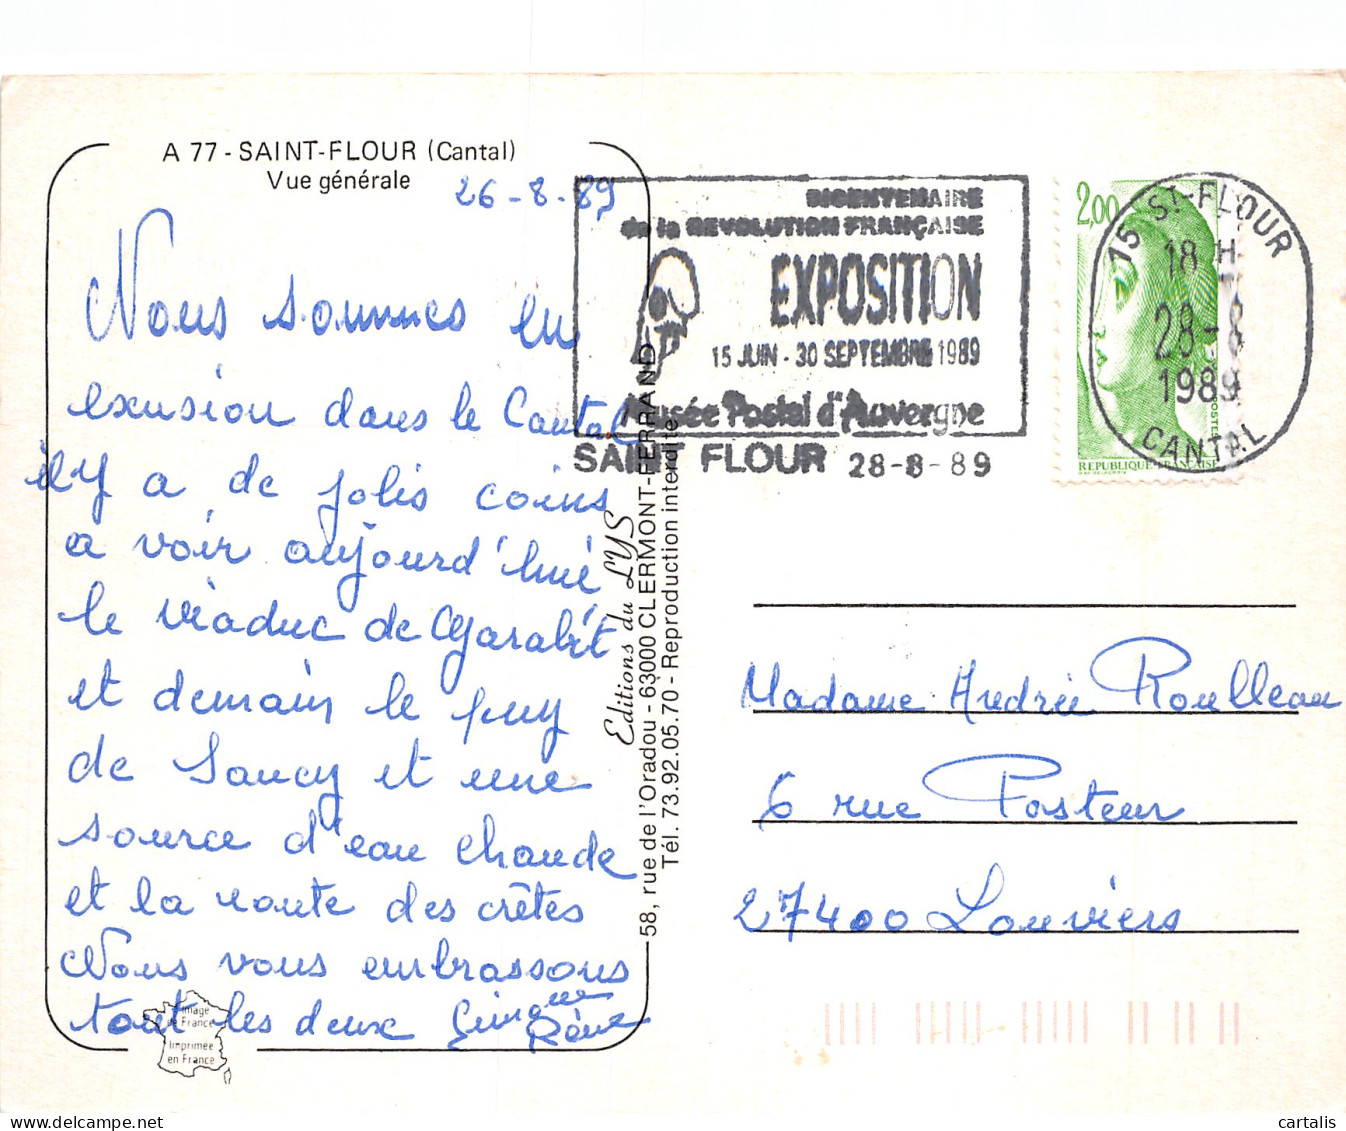 A 77 - SAINT-FLOUR (Cantal)
Vue générale
26-8-89
Nous sommes en
exusion dans le Cantal
il y a de jolis coins
a voir aujourd'hui
le viaduc de Garabit
et demain le puy
de Sancy et une
source d'eau chaude
et la route des crêtes
Nous vous embrassons
tout les deux
René
Image
de France
Imprimée
en France
Editions du LYS
58, rue de l'Oradou - 63000 CLERMONT-FERRAND
Tél. 73.92.05.70 - Reproduction interdite
BICENTENAIRE
de la REVOLUTION FRANÇAISE
EXPOSITION
15 JUIN - 30 SEPTEMBRE 1989
Musée Postal d'Auvergne
SAINT FLOUR 28-8-89
2,00
REPUBLIQUE FRANÇAISE
POSTES
15 ST-FLOUR
18 H
28-8
1989
CANTAL
Madame Andrée Roulleau
6 rue Pasteur
27400 Louviers
cartalis